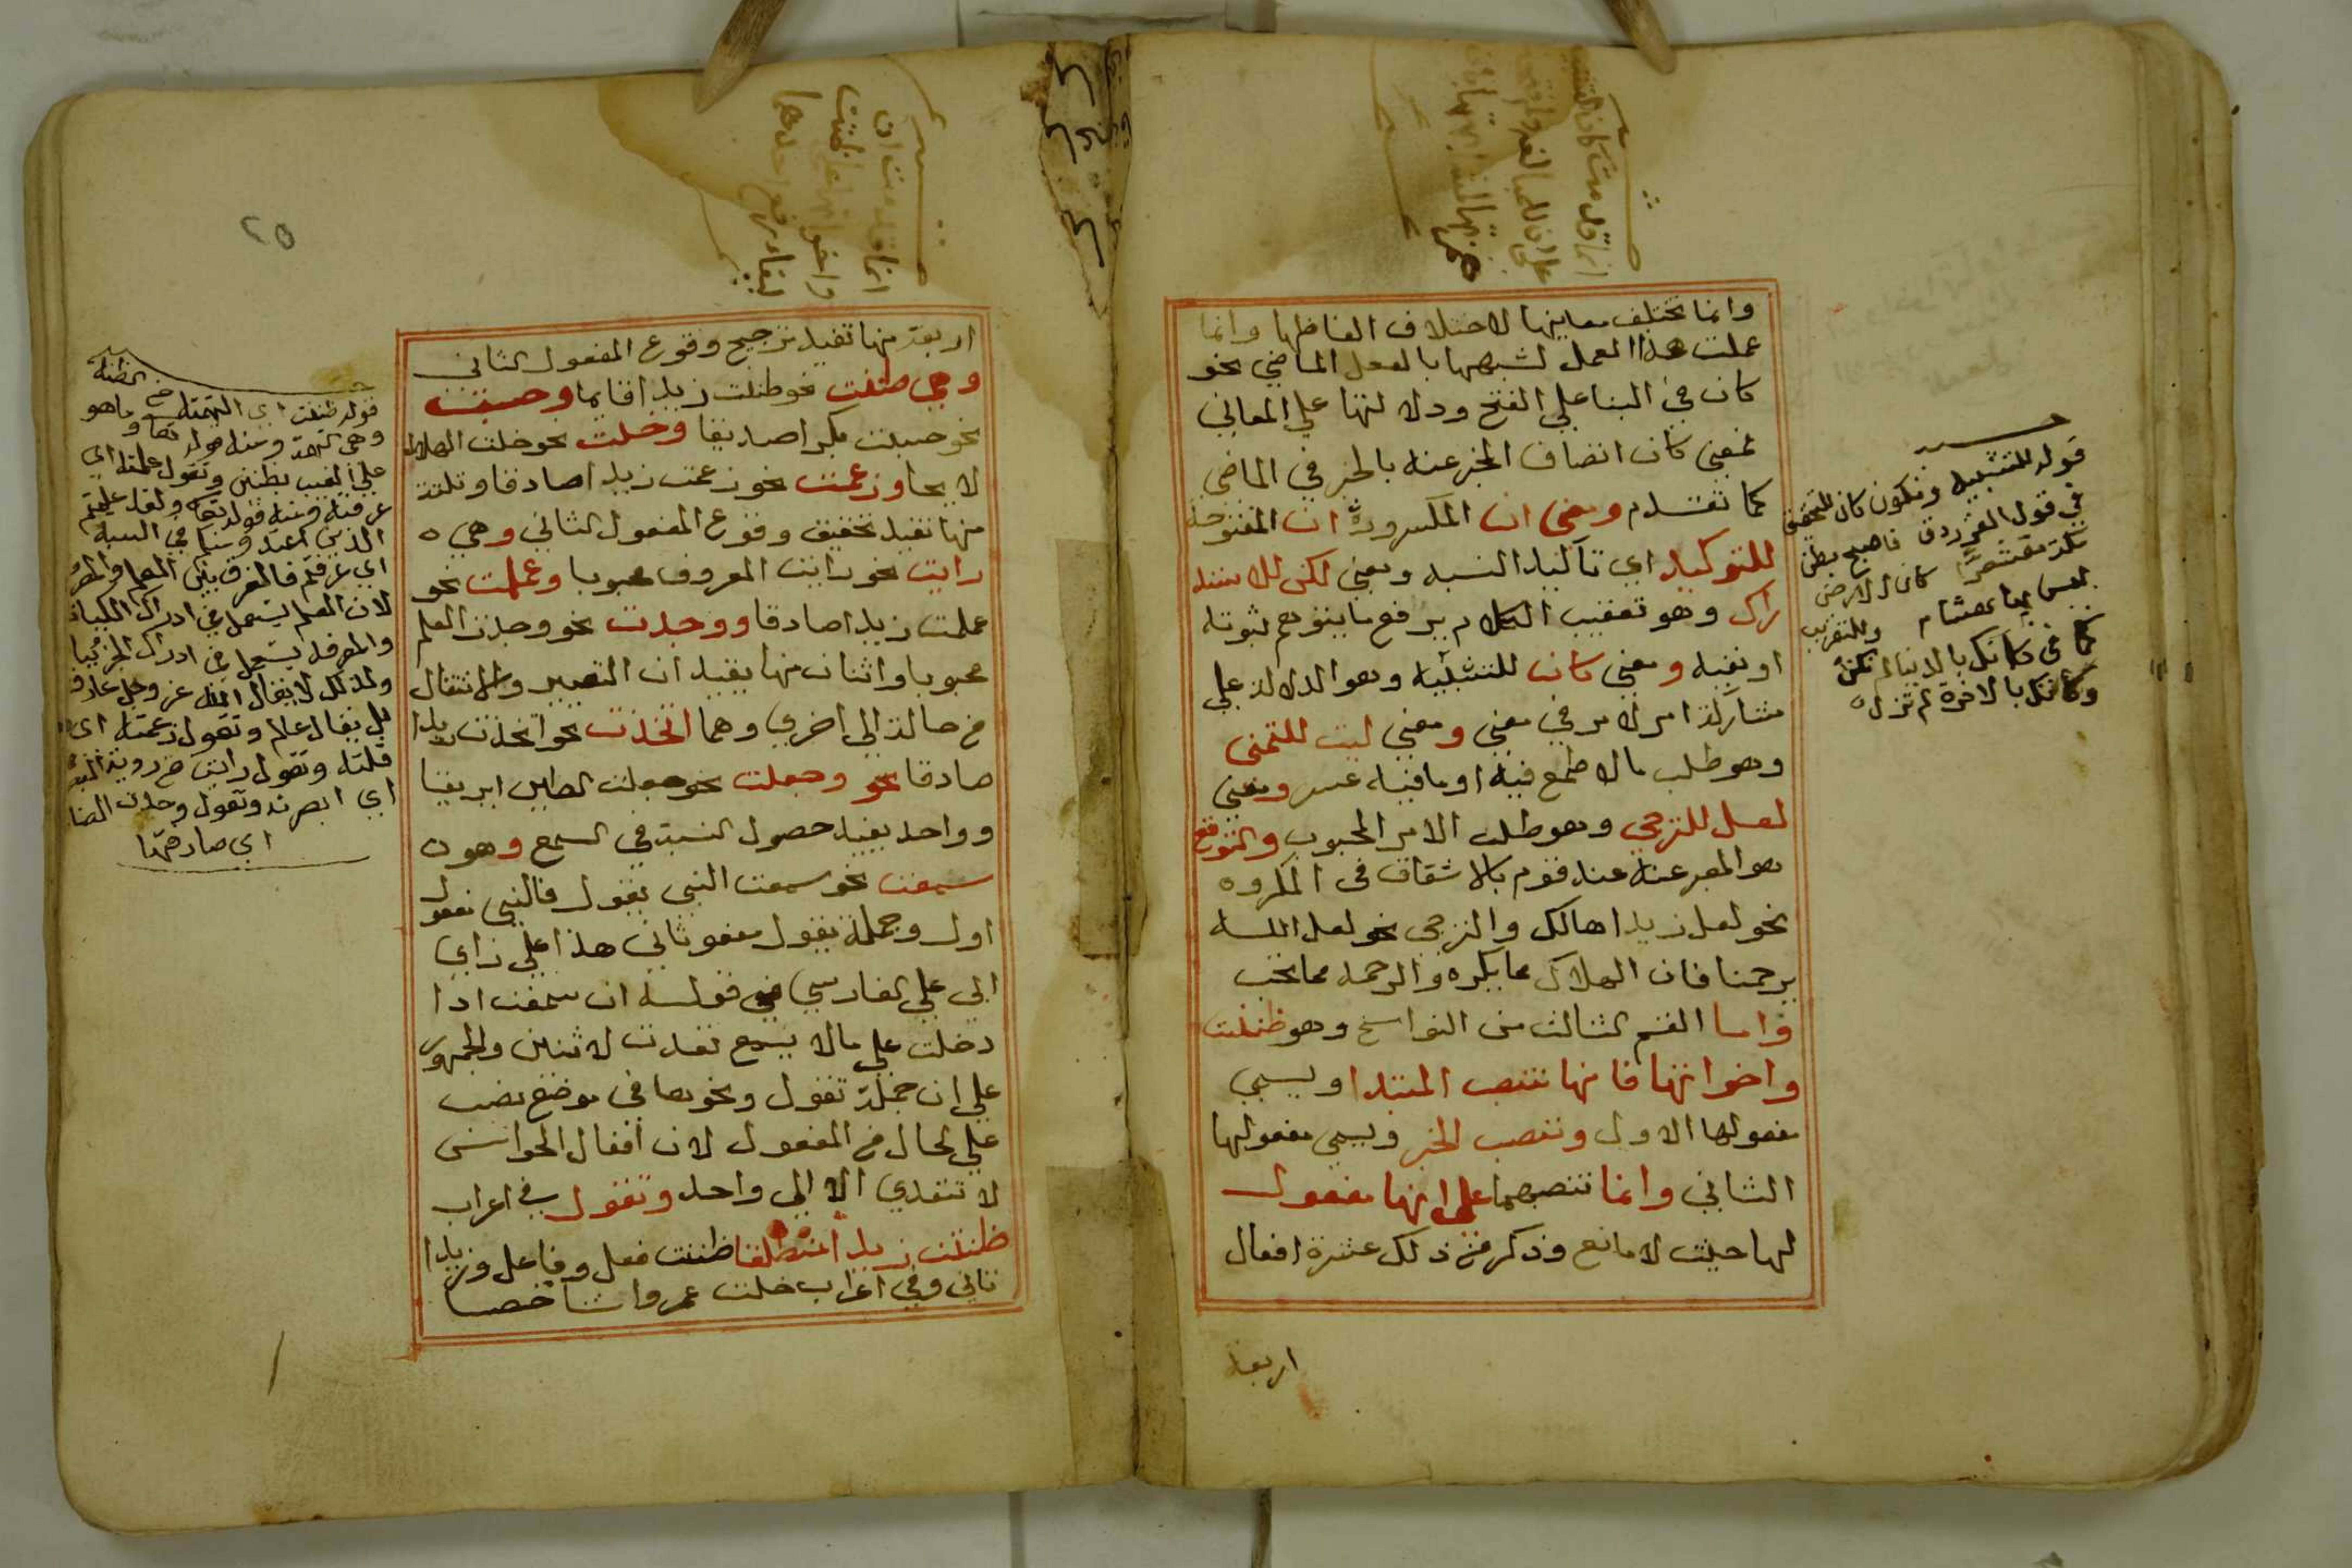 وانما تختلف معانيها لاختلاف الفاظها وانما
عملت هذا العمل لشبهها بالفعل الماضي نحو
كان في البنا علي الفتح ودلالتها علي المعاني
فمعني كان اتصاف المخبر عنه بالخبر في الماضي
كما تقدم ومعني ان المكسورة وان المفتوحة
للتوكيد اي تاكيد النسبه ومعني لكن للاستد
راك وهو تعقيب الكلام برفع ما يتوهم ثبوته
او نفيه ومعني كان للتشبيه وهو الدلالة علي
مشاركة امر لامر في معني ومعني ليت للتمني
وهو طلب ما لا طمع فيه او ما فيه عسر ومعني
لعل للترجي وهو طلب الامر المحبوب والتوقع
هو المعبر عنه عند قوم بالاشفاق في المكروه
نحو لعل زيدا هالك والترجي نحو لعل الله
يرحمنا فان الهلاك مما يكره والرحمه مما تحب
واما القسم الثالث من النواسخ وهو ظننت
واخواتها فانها تنصب المبتدا ويسمي
مفعولها الاول وتنصب الخبر ويسمي مفعولها
الثاني وانما تنصبهما علي انها مفعول
لها حيث لا مانع وذكر من ذلك عشرة افعال
اربعة
قوله للتشبيه وتكون كان للتحقيق
في قول الفرزدق فاصبح بطن
مكة مقشعرا كان الارض
ليس بها هشام وللتقريب
كما في كانك بالدنيا لم تكن
وكانك بالاخرة لم تزل
٢٥
اربعة منها تفيد ترجيح وقوع المفعول الثاني
وهي ظننت نحو ظننت زيدا قايما وحسبت
نحو حسبت بكرا صديقا وخلت نحو خلت الهلال
لايحا وزعمت نحو زعمت زيدا صادقا وثلاثة
منها تفيد تحقيق وقوع المفعول الثاني وهي
رايت نحو رايت المعروف محبوبا وعلمت نحو
علمت زيدا صادقا ووجدت نحو وجدت العلم
محبوبا واثنان منها يفيدان التصيير والانتقال
من حالة الي اخري وهما اتخذت نحو اتخذت زيدا
صادقا نحو وجعلت نحو جعلت الطين ابريقا
وواحد يفيد حصول النسبة في السمع وهو
سمعت نحو سمعت النبي يقول فالنبي مفعول
اول وجملة يقول مفعو ثاني هذا علي راي
ابي علي الفارسي في قوله ان سمعت اذا
دخلت علي ما لا يسمع تعدت لاثنين والجمهور
علي ان جملة تقول ونحوها في موضع نصب
علي الحال من المفعول لان افعال الحواس
لا تتعدي الا الي واحد وتقول في اعراب
ظننت زيدا منطلقا ظننت فعل وفاعل وزيدا
ثاني وفي اعراب خلت عمروا شاخصا
قوله ظننت اي التهمته من الظنة
وهي التهمة ومنه قوله تعا وما هو
علي الغيب بظنين وتقول علمته اي
عرفته ومنه قوله تعا ولقد علمتم
الذين اعتدوا منكم في السبت
اي عرفتم فالفرق بين العلم والمعر
لان العلم يستعمل في ادراك الكليات
والمعرفة يستعمل في ادراك الجزئيا
ولذلك لا يقال الله عز وجل عارف
بل يقال عالم وتقول زعمته اي
قلته وتقول رايت من روية البصر
اي ابصرته وتقول وجدت الضا
اي صادفتها